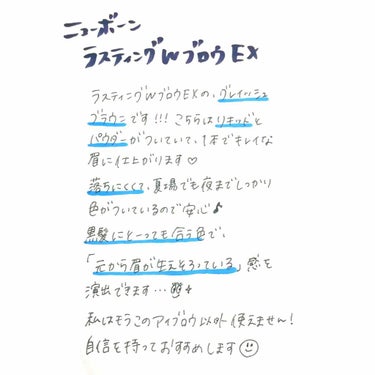 ニューボーン
ラスティングWブロウEX
ラスティングWブロウEXの、グレイッシュ
ブラウンです!!! こちらはリキッドと
パウダーがついていて、1本でキレイな
眉に仕上がります♡
落ちにくくて、夏場でも夜までしっかり
色がついているので安心♪
黒髪にとっても合う色で、
「元から眉が生えそろっている」感を
演出できます…
私はもうこのアイブロウ以外使えません!
自信を持っておすすめします☺